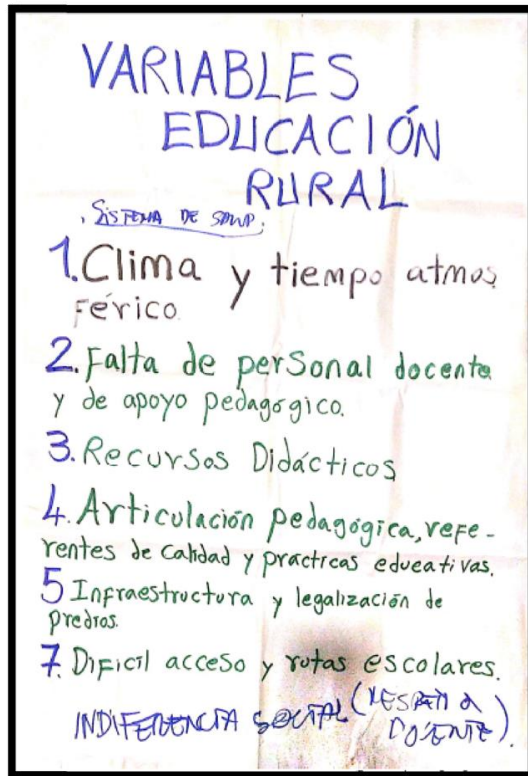 VARIABLES
EDUCACIÓN
RURAL
. SISTEMA DE SALUD.
1. Clima y tiempo atmos
férico.
2. Falta de personal docente
y de apoyo pedagógico.
3. Recursos Didácticos
4. Articulación pedagógica, refe-
rentes de calidad y practicas educativas.
5 Infraestructura y legalización de
predios.
7. Dificil acceso y rutas escolares.
INDIFERENCIA SOCIAL (
DOCENTE).